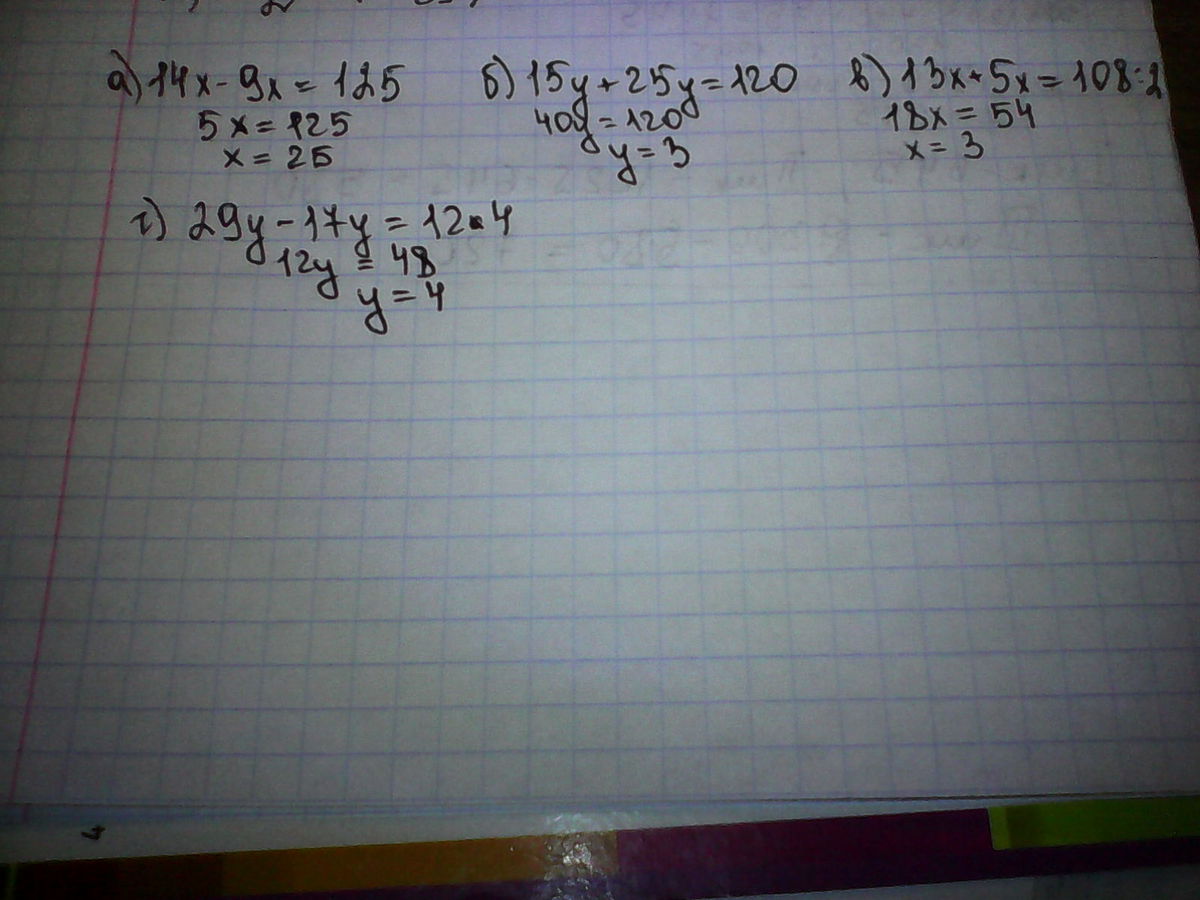 а) 14x - 9x = 125
5x = 125
x = 25
б) 15y + 25y = 120
40y = 120
y = 3
в) 13x + 5x = 108:2
18x = 54
x = 3
г) 29y - 17y = 12·4
12y = 48
y = 4